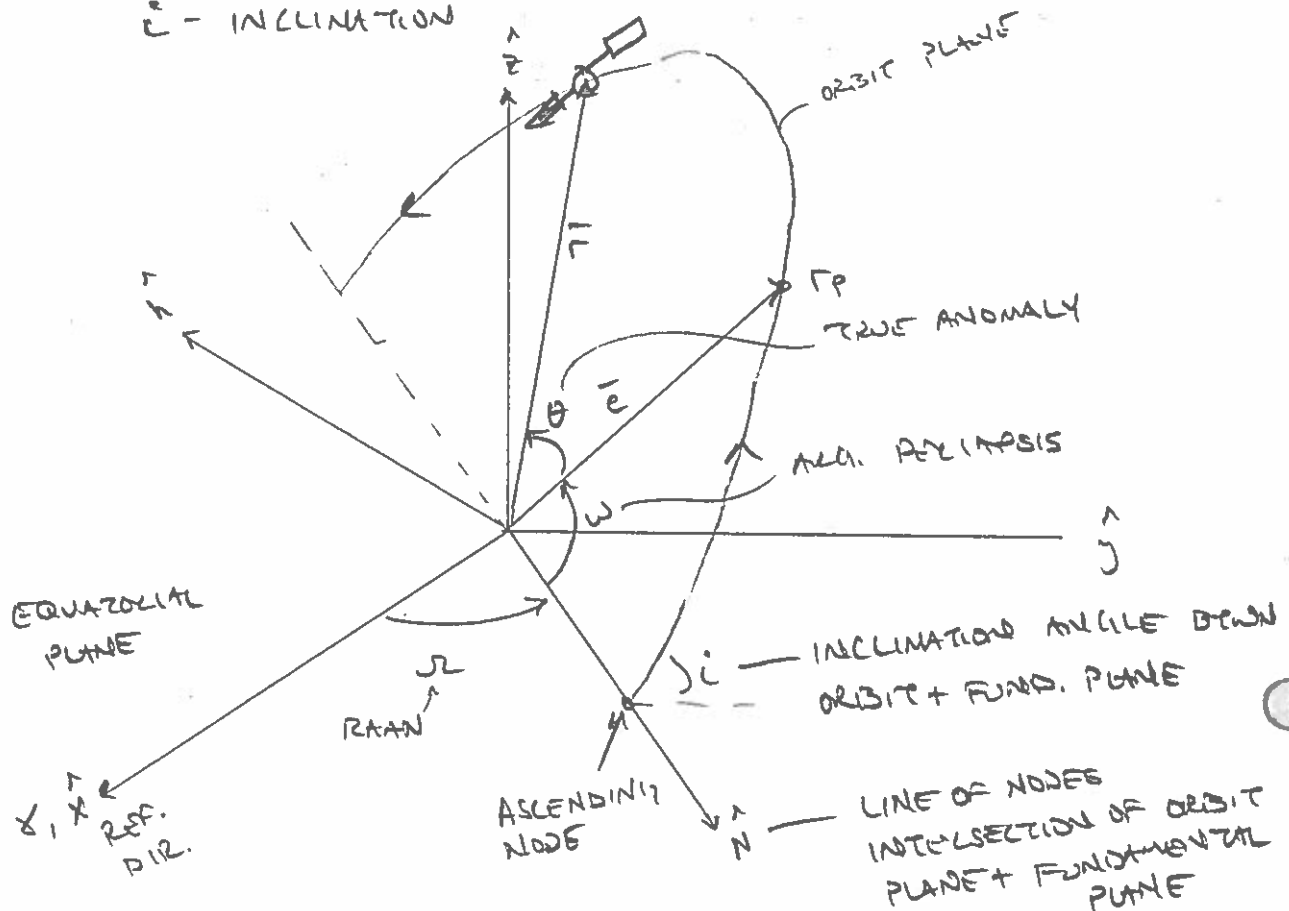 i - INCLINATION
ẑ
ORBIT PLANE
r̄
ĥ
rp
TRUE ANOMALY
θ
ē
ARG. PERIAPSIS
ω
ŷ
EQUATORIAL
PLANE
i — INCLINATION ANGLE BTWN
ORBIT + FUND. PLANE
Ω
RAAN
ASCENDING
NODE
γ, x̂ REF.
DIR.
N̂ — LINE OF NODES
INTERSECTION OF ORBIT
PLANE + FUNDAMENTAL
PLANE